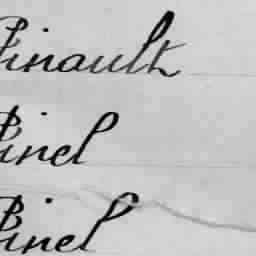 Pinault
Pinel
Pinel